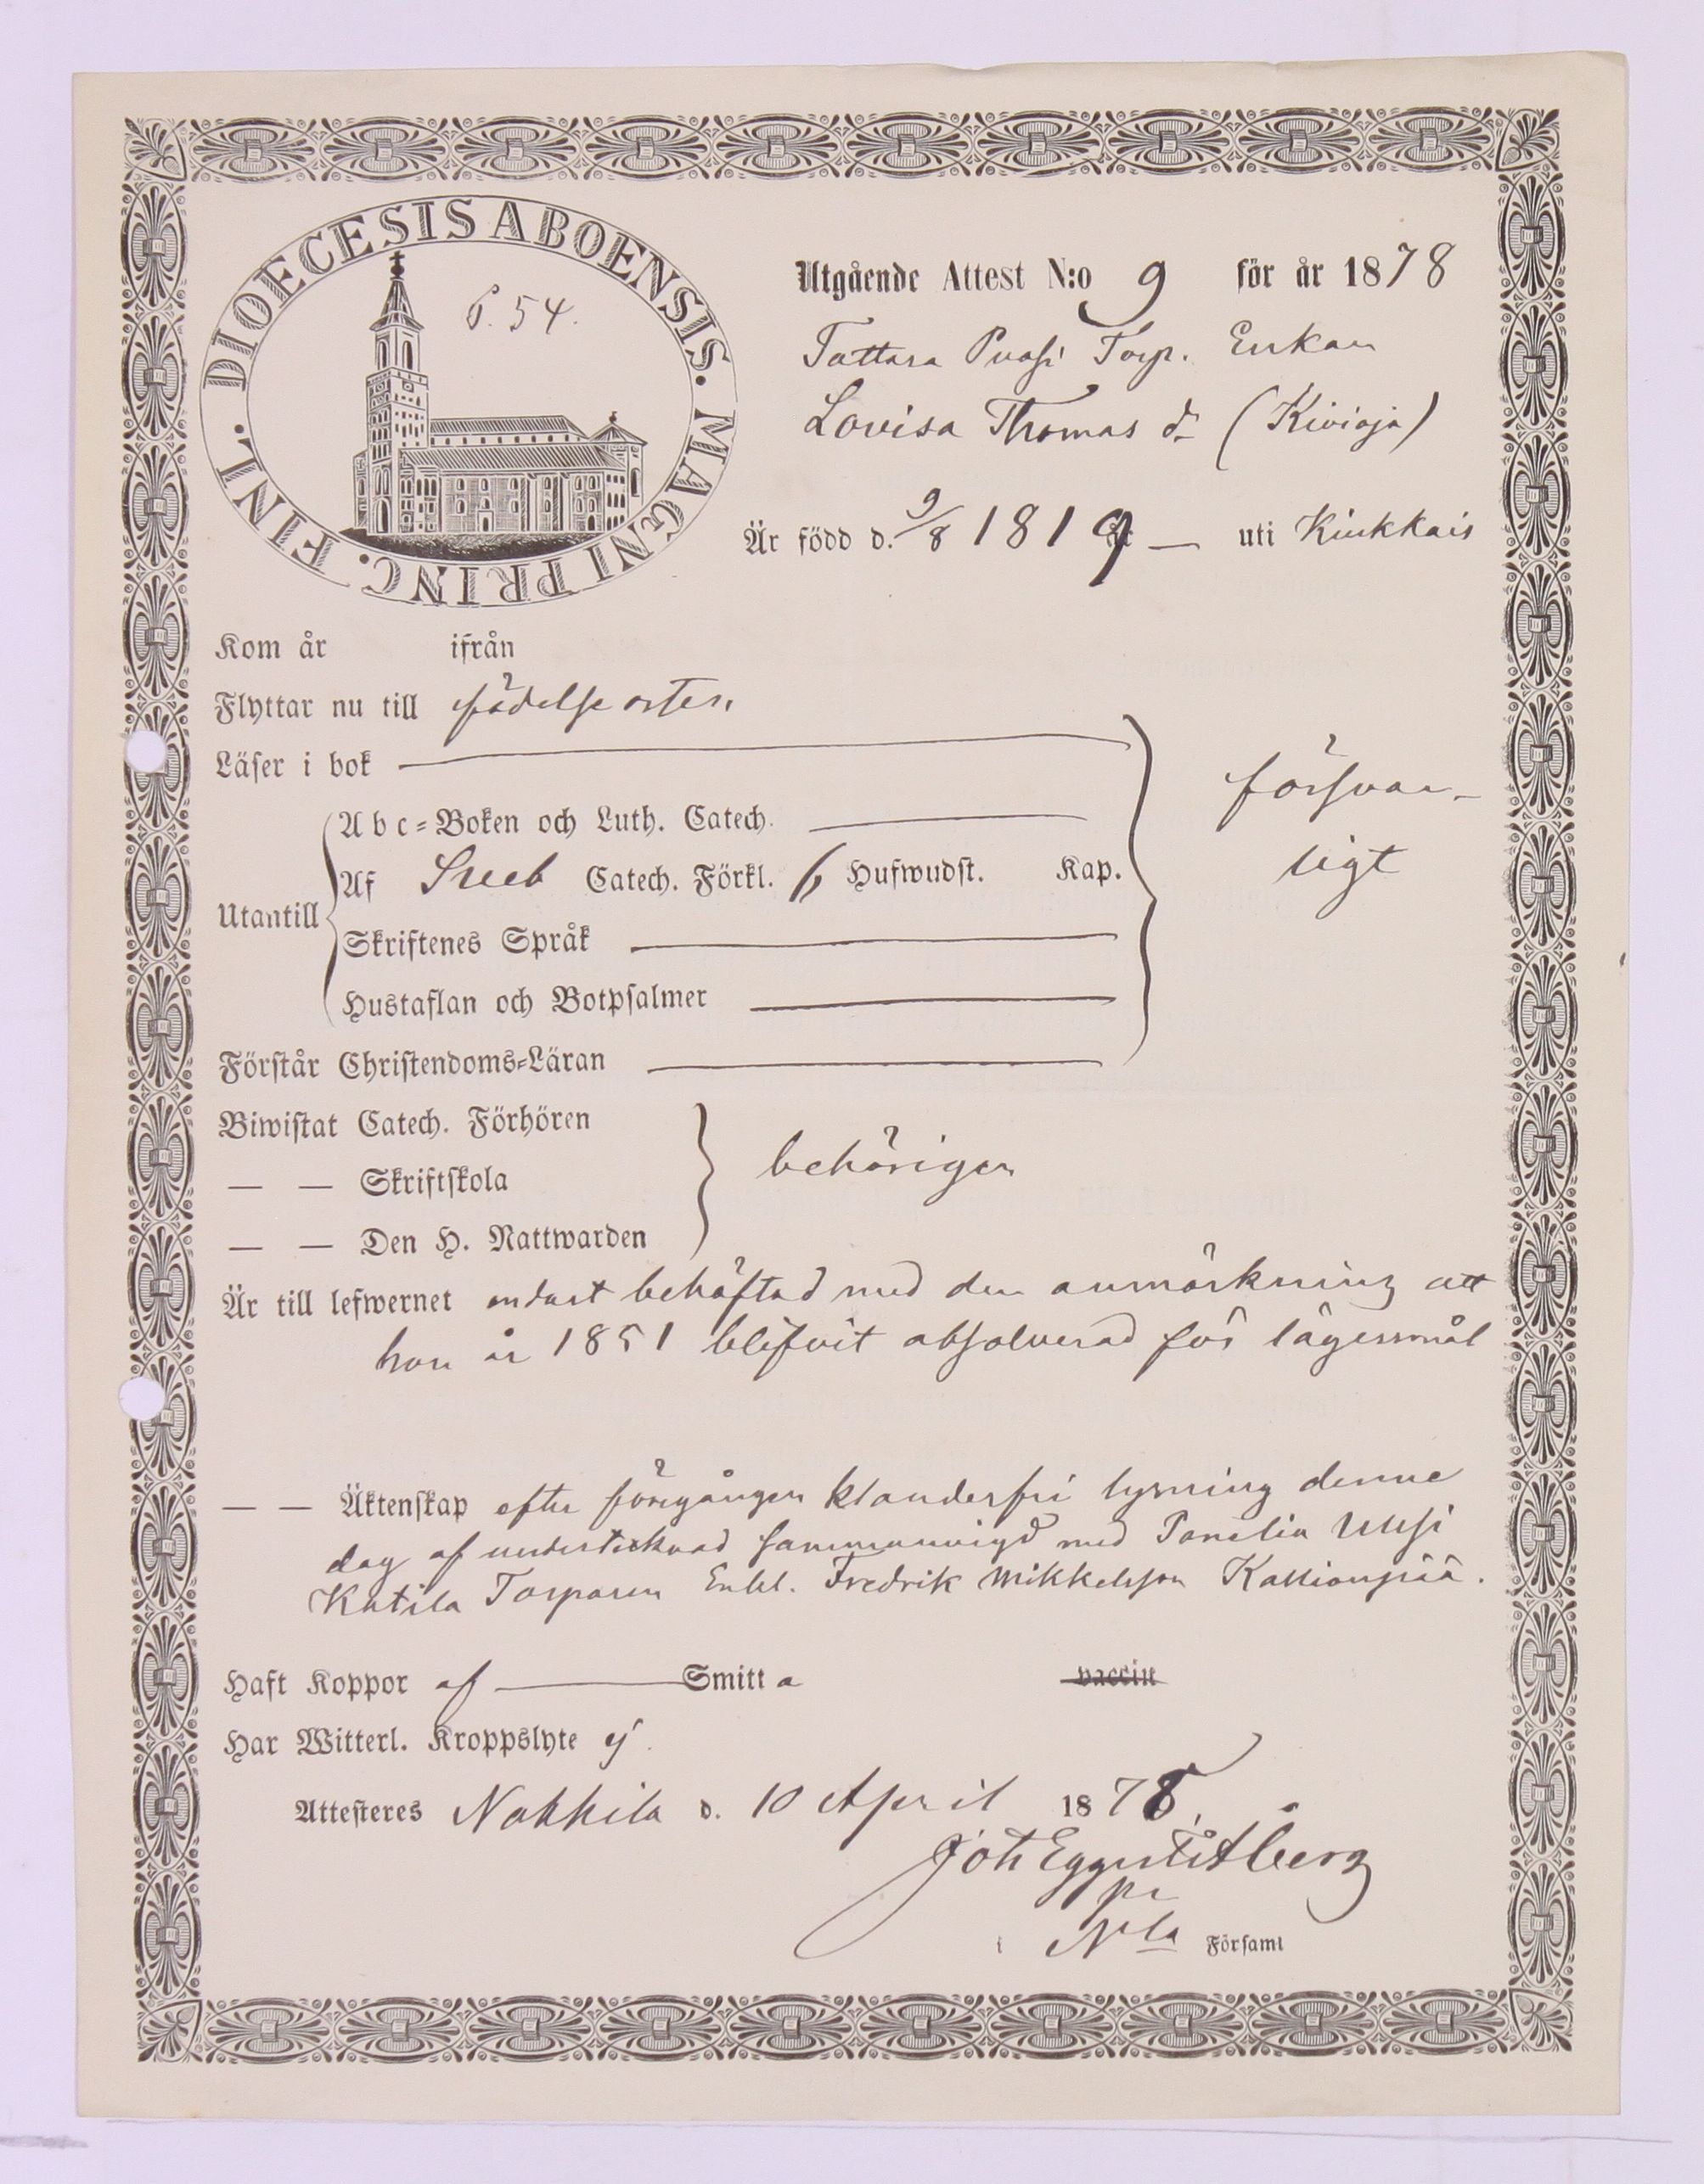 DIOECESIS ABOENSIS. MAGNI PRINC. FINL.
P. 54.
Utgående Attest N:o 9 för år 1878
Tattara Torp. Enkan
Lovisa Thomas d. (Kivioja)
Är född d. 9/8 1819 — uti Kiukkais
Kom år ifrån
Flyttar nu till födelseorten
Läser i bok
försvar-
Abc-Boken och Luth. Catech.
Af Sveb Catech. Förkl. 6 Hufwudst. Kap.
ligt
Utantill
Skriftenes Språk
Hustaflan och Botpsalmer
Förstår Christendoms-Läran
Biwistat Catech. Förhören
— — Skriftskola
behörigen
— — Den H. Nattwarden
Är till lefwernet endast behäftad med den anmärkning att
hon år 1851 blifvit absolverad för lägersmål
— — Äktenskap efter föregången klanderfri lysning denne
dag af undertecknad sammanvigd med Panelia Uusi
Katila Torparen Enkl. Fredrik Mikkelsson Kallionpää.
Haft Koppor af Smitta vaccin
Har Witterl. Kroppslyte ej.
Attesteres Nakkila d. 10 April 1878.
Joh Eggert Åberg
i Nla Församl